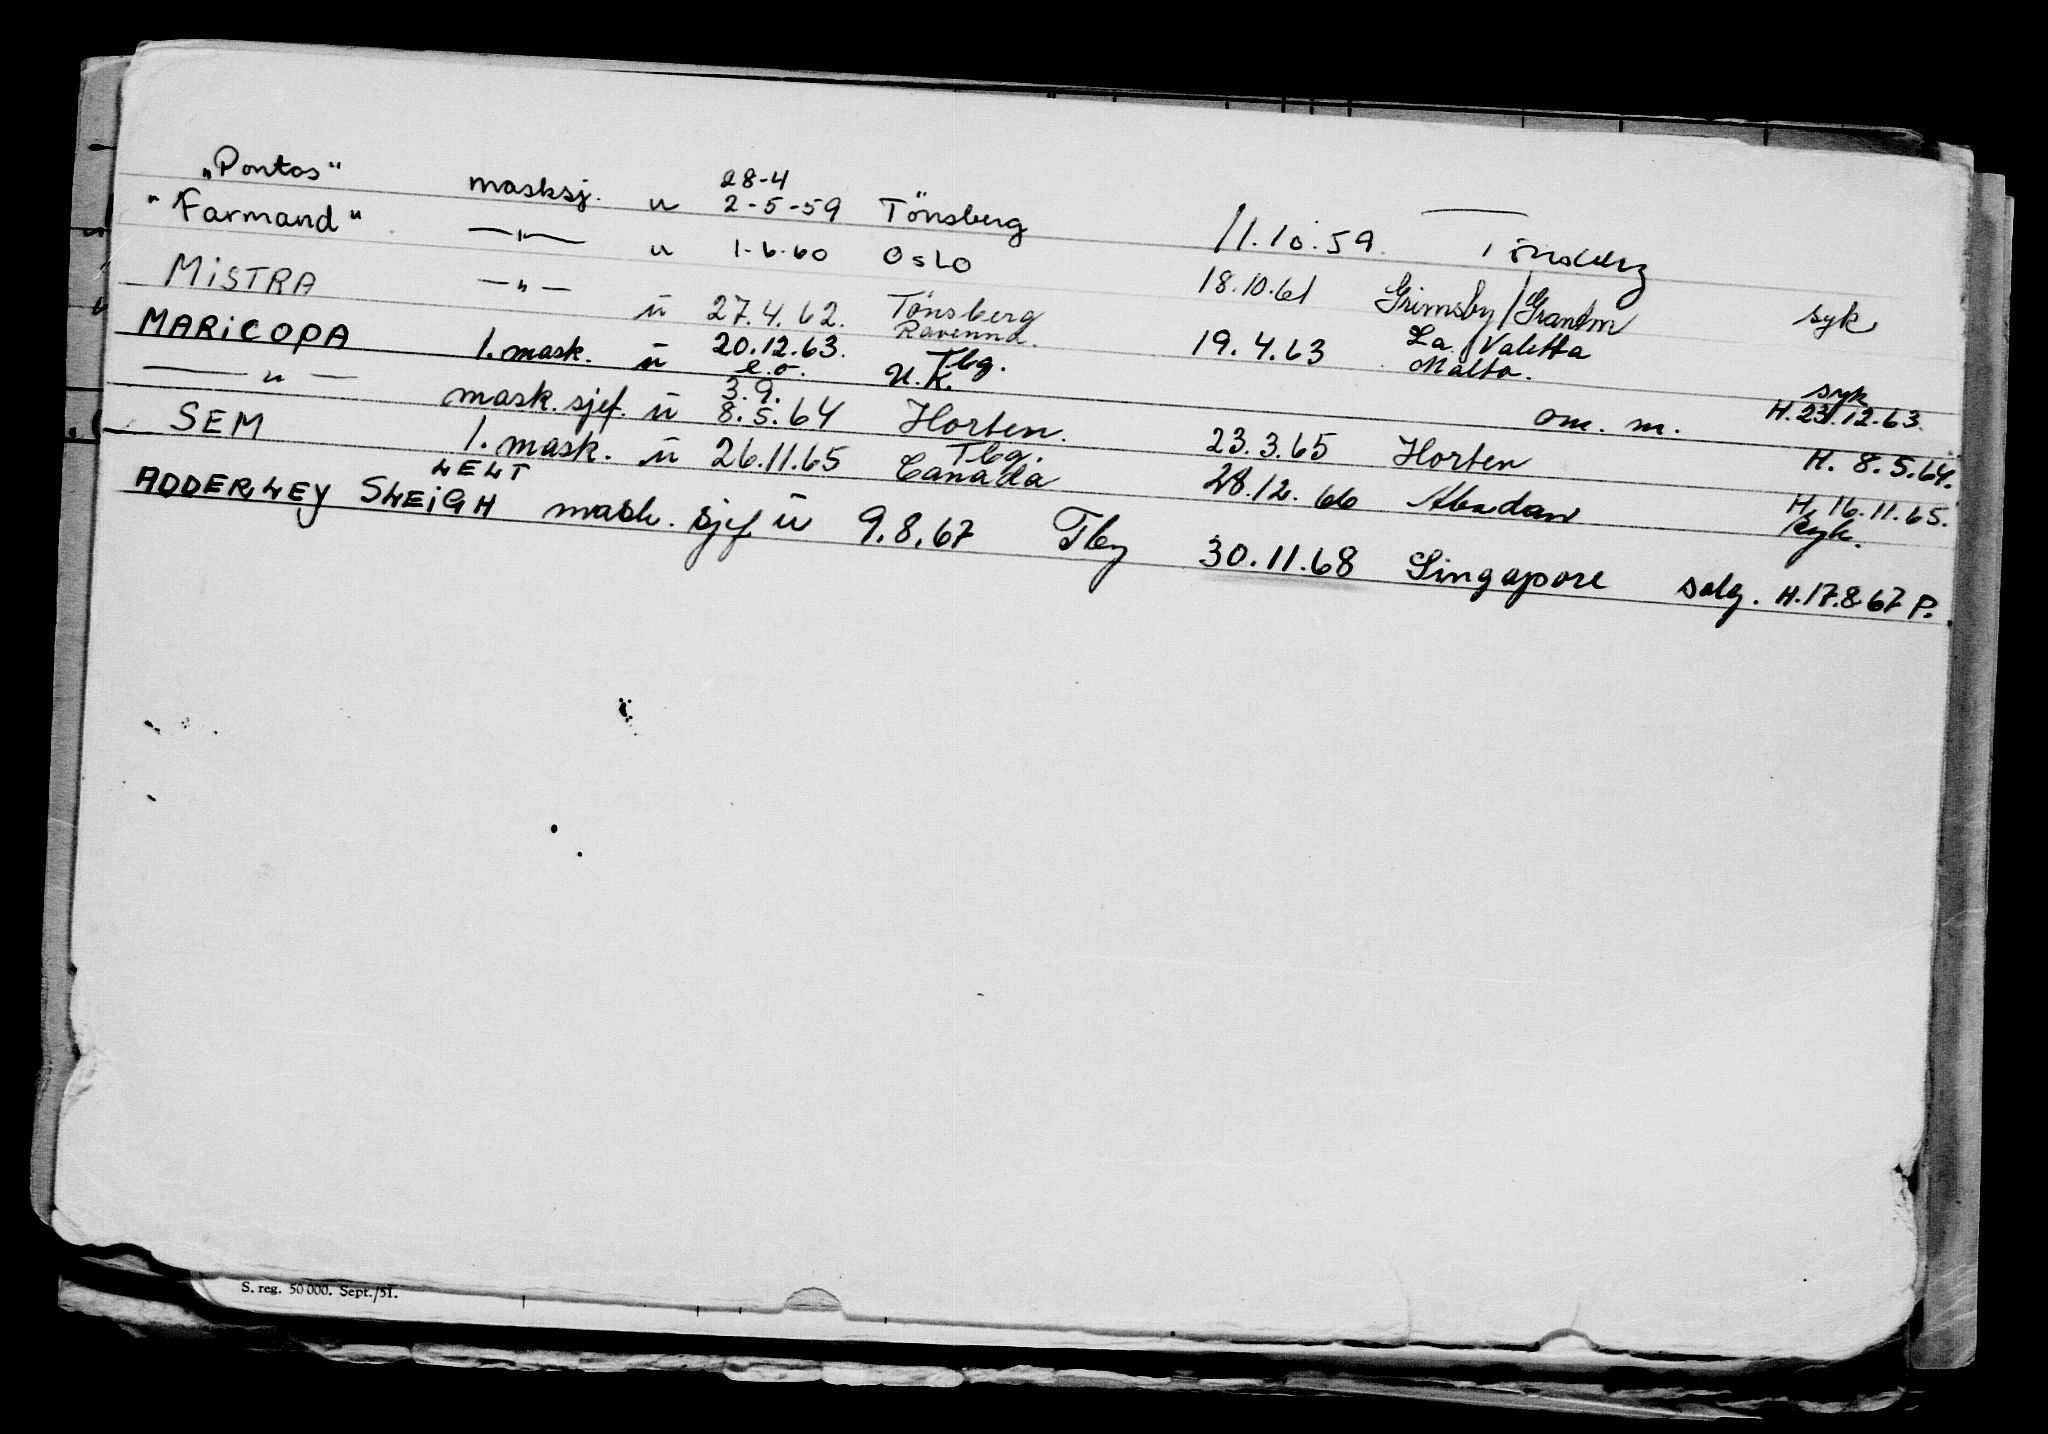 „Pontos“ masksj. u 28-4 2-5-59 Tönsberg 11.10.59. Tönsberg
"Farmand" —"— u 1.6.60 Oslo 18.10.61 Grimsby/Grantm syk
MiSTRA —"— u 27.4.62. Tönsberg Ravenna. 19.4.63 La Valetta Malta. syk
MARiCOPA 1. mask. u 20.12.63. e.o. Tbg. U.K. om. m. H. 23.12.63.
—"— mask. sjef. u 3.9. 8.5.64 Horten. 23.3.65 Horten H. 8.5.64.
SEM 1. mask. u 26.11.65 Tbg. Canada 28.12.66 Abadan H. 16.11.65. syk.
ADDERLEY SLEiGH LELT mask. sjef u 9.8.67 Tbg 30.11.68 Singapore salg. H.17.8.67 P.
S. reg. 50 000. Sept./51.